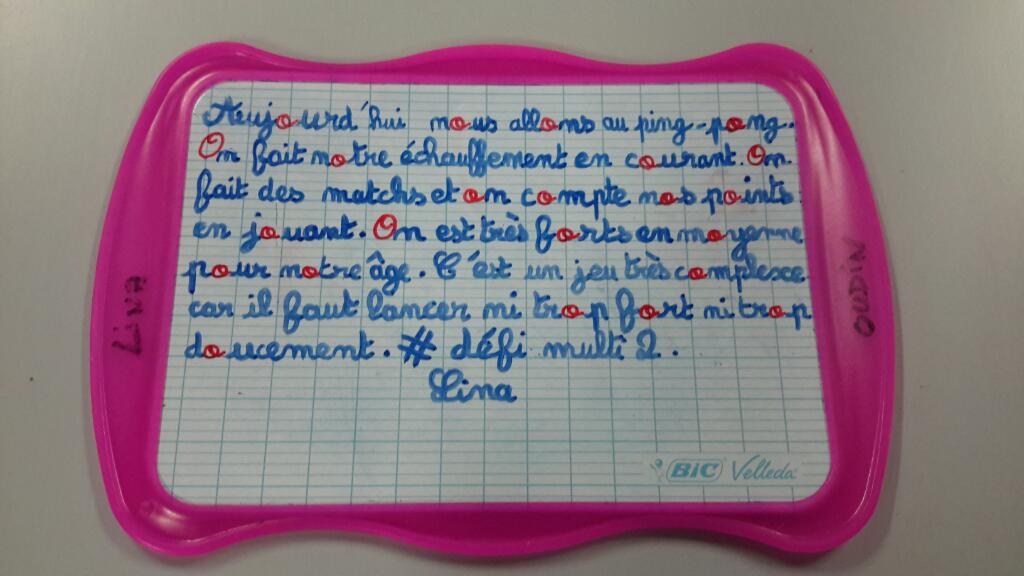 Aujourd'hui nous allons au ping-pong.
On fait notre échauffement en courant. On
fait des matchs et on compte nos points
en jouant. On est très forts en moyenne
pour notre âge. C'est un jeu très complexe
car il faut lancer ni trop fort ni trop
doucement. # défi multi 2.
Lina
LINA
OUDIN
BIC Velleda